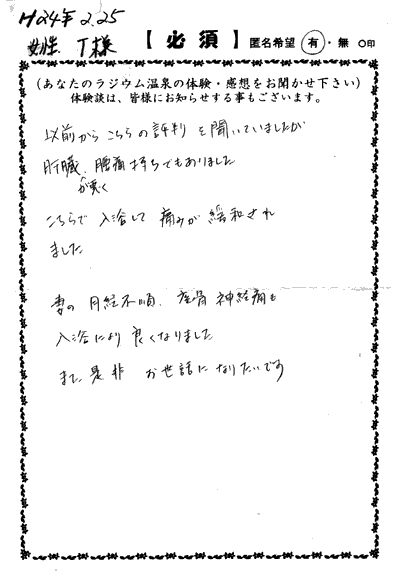 H24年 2.25
女性 T様 【必須】 匿名希望 有・無 ○印
(あなたのラジウム温泉の体験・感想をお聞かせ下さい)
体験談は、皆様にお知らせする事もございます。
以前からこちらの評判を聞いていましたが
肝臓が悪く、腰痛持ちでもありました
こちらで入浴して痛みが緩和され
ました
妻の月経不順、座骨神経痛も
入浴により良くなりました
また是非お世話になりたいです